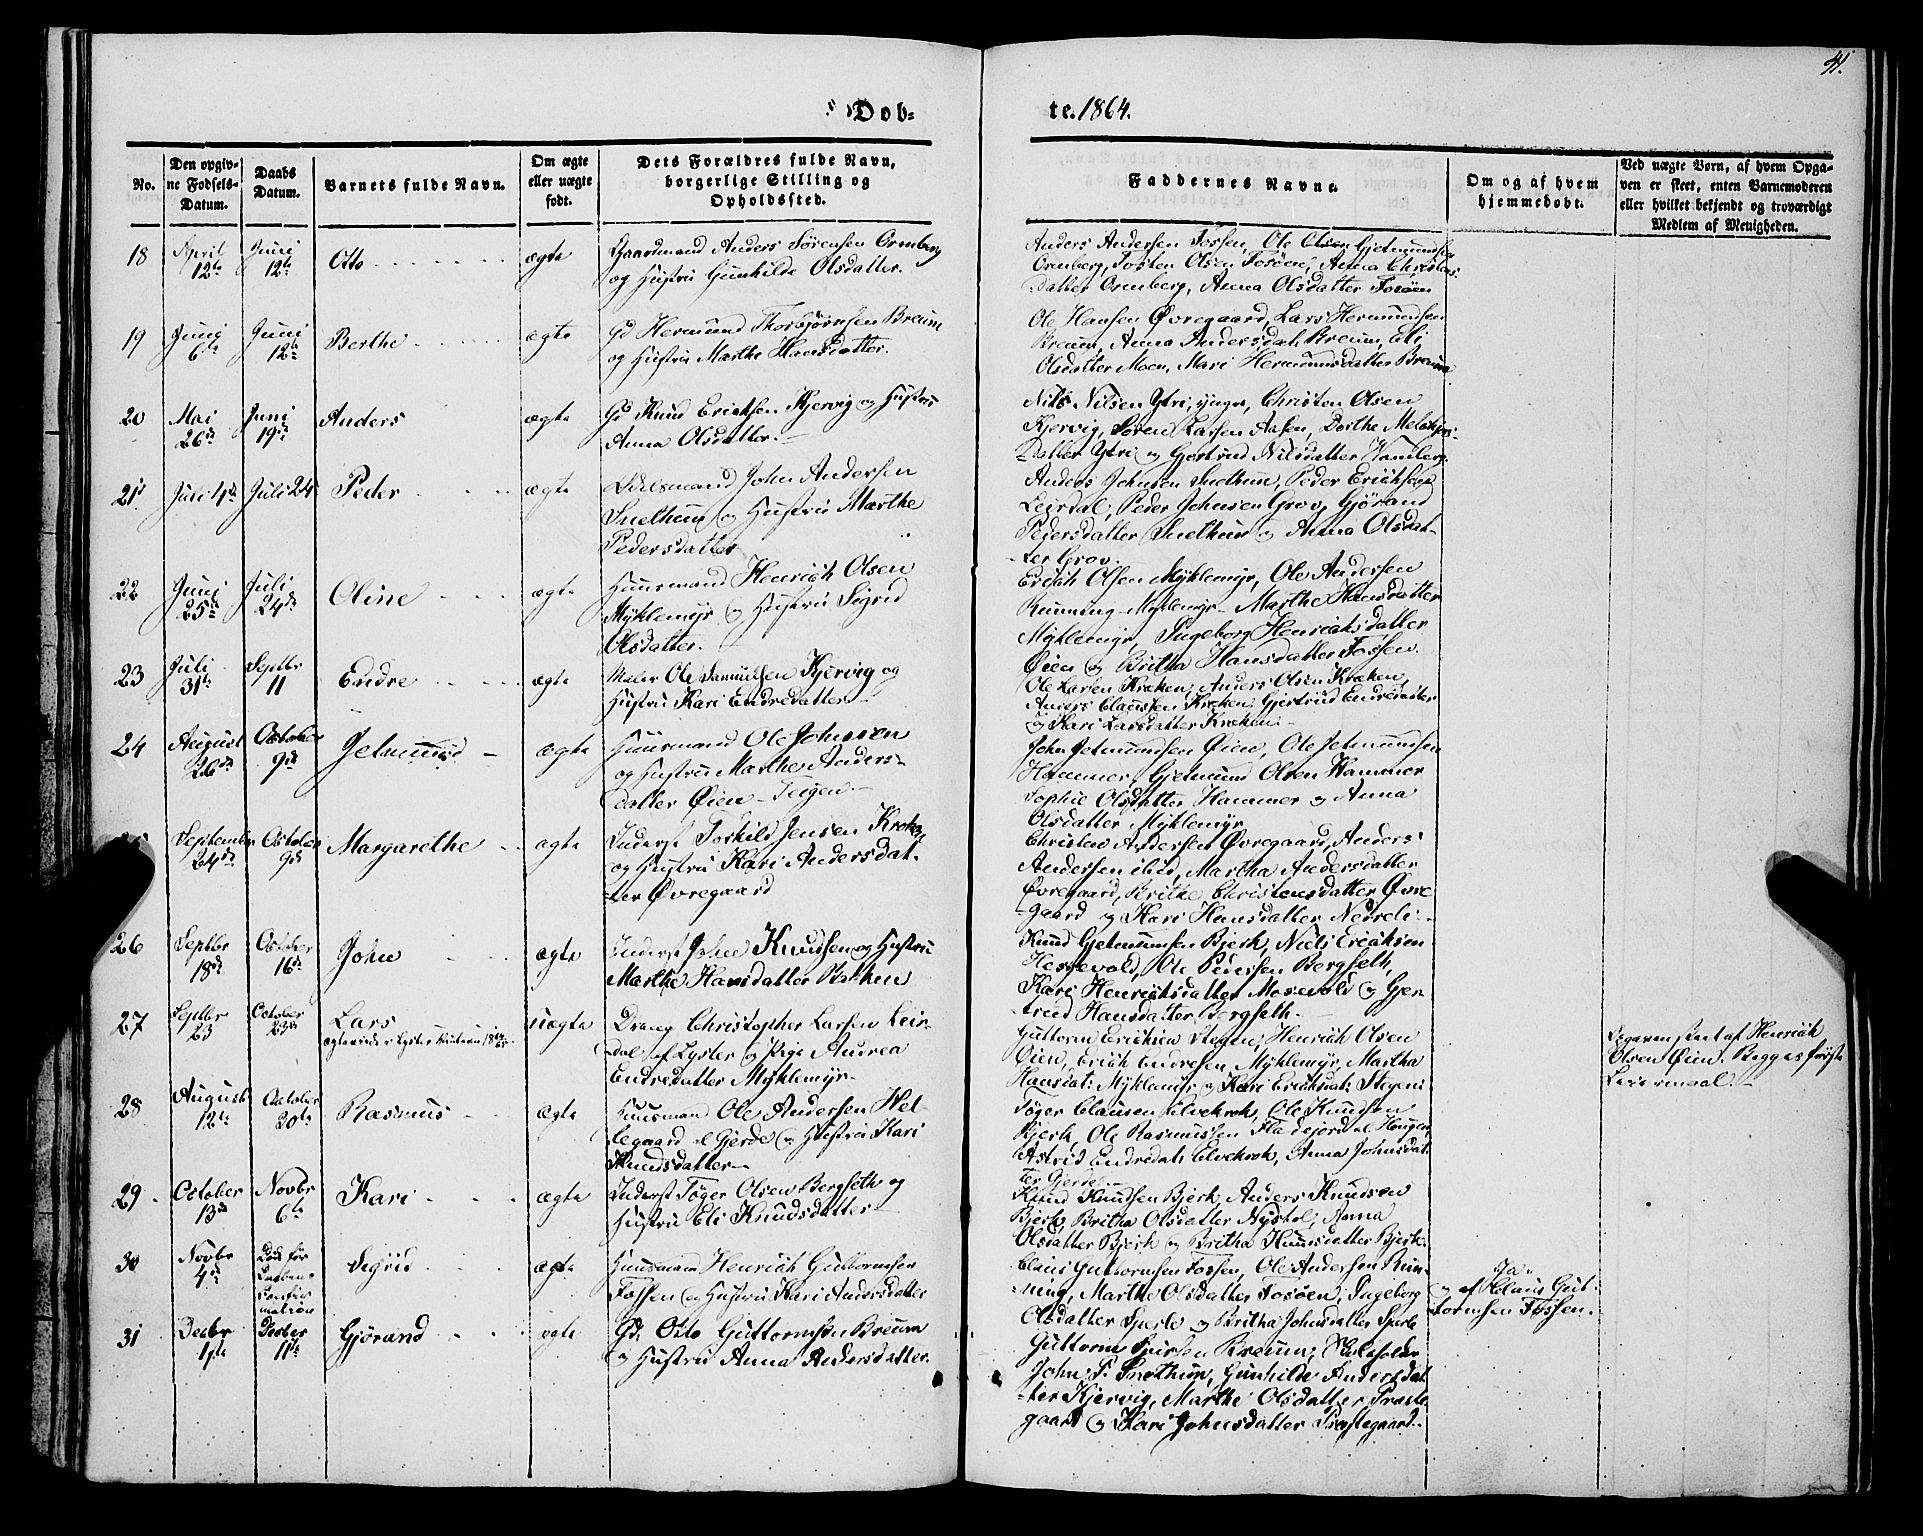 41.
Døb=
te. 1864.
No.
Den opgiv-
ne Fødsels-
Datum.
Daabs
Datum.
Barnets fulde Navn.
Om ægte
eller uægte
født.
Dets Forældres fulde Navn,
borgerlige Stilling og
Opholdssted.
Faddernes Navne.
Om og af hvem
hjemmedøbt.
Ved uægte Børn, af hvem Opga-
ven er skeet, enten Barnemoderen
eller hvilket bekjendt og troværdigt
Medlem af Menigheden.
18
April
12te
Juni
12te
Otto
ægte
Gaardmand Anders Sørensen Ormberg
og Hustru Gunhilde Olsdatter.
Anders Andersen Fossen, Ole Olsen Gjetmundsen
Ormberg, Tosten Olsen Fosøen, Anna Christens
datter Ormberg, Anna Olsdatter Fosøen
19
Juni
6te
Juni
12te
Berthe
ægte
Gd Hermund Thorbjørnsen Breum
og Hustru Marthe Hansdatter.
Ole Hansen Øvregaard, Lars Hermundsen
Breum, Anna Andersdat. Breum, Eli
Olsdatter Moen, Mari Hermunsdatter Breum
20
Mai
26de
Juni
19de
Anders
ægte
Gd Knud Erichsen Kjervig og Hustru
Anna Olsdatter.
Nils Nilsen Ytri, yngre, Christen Olsen
Kjervig, Søren Larsen Aasen, Dorthe Melchjors-
Datter Ytri og Gjertrud Nilsdatter Hamberg.
21
Juli 4de
Juli 24
Peder
ægte
Odelsmand John Andersen
Snethun og Hustru Marthe
Pedersdatter
Anders Johnsen Snethun, Peder Erichsen
Leirdal, Peder Johnsen Grov, Gjørand
Pedersdatter Snethun og Anna Olsdat-
ter Grov.
22
Juni
25de
Juli
24de
Oline
ægte
Huusmand Henrich Olsen
Myklemyr og Hustru Sigrid
Olsdatter.
Erich Olsen Myklemyr, Ole Andersen
Running-Myklemyr, Marthe Hansdatter
Myklemyr, Ingeborg Henrichsdatter
Øien og Britha Hansdatter Fossen.
23
Juli
31te
Septbr
11
Endre
ægte
Maler Ole Samuelsen Kjervig og
Hustru Kari Endredatter
Ole Larsen Kroken, Anders Olsen Kroken,
Anders Clausen Kroken, Gjertrud Endredatter
og Kari Larsdatter Kroken.
24
August
26de
October
9de
Jetmund
ægte
Huusmand Ole Johnson
og Hustru Marthe Anders-
datter Øien-Teigen.
John Jetmundsen Øien, Ole Jetmundsen
Hammer, Gjetmund Olsen Hammer
Sophie Olsdatter Hammer og Anna
Olsdatter Myklemyr
September
24de
October
9de
Margarethe
ægte
Inderst Torkild Jensen Kroken
og Hustru Kari Andersdat-
ter Øvregaard
Christen Andersen Øvregaard, Anders
Andersen ibid, Martha Andersdatter
Øvregaard, Brithe Christensdatter Øvre
gaard og Kari Hansdatter Nedreli.
26
Septbr
18de
October
16de
John
ægte
Inderst John Knudsen og Hustru
Marthe Hansdatter Bakken
Knud Gjetmundsen Bjerk, Niels Erichsen
Hessevold, Ole Pedersen Bergseth,
Kari Henrichsdatter Mosevold og Gjer-
trud Hansdatter Bergseth.
27
Septbr
23
October
23de
Lars
uægte
Dreng Christopher Larsen Leir-
dal af Lyster og Pige Andrea
Endredatter Myklemyr.
Guttorm Erichsen Stegen, Henrich Olsen
Øien, Erich Endresen Myklemyr, Martha
Hansdat: Myklemyr og Kari Erichsdat: Stegen.
Opgaven skeet af Henrich
Olsen Øien. Begges første
Leiermaal.
28
August
12te
October
30te
Rasmus
ægte
Huusmand Ole Andersen Hel-
legaard el Gjerde og Hustru Kari
Knudsdatter
Tøger Clausen Elvekrok, Ole Knudsen
Bjerk, Ole Rasmussen Fladejord el Hougen,
Astrid Endredat. Elvekrok, Anna Johnsdat:
ter Gjerde
29
October
13de
Novbr
6te
Kari
ægte
Inderst Tøger Olsen Bergseth og
Hustru Eli Knudsdatter
Knud Knudsen Bjerk, Anders Knudsen
Bjerk, Britha Olsdatter Nystøl, Anna
Olsdatter Bjerk og Britha Knudsdatter Bjerk.
30
Novbr
4de
Død før
Daabens
Confir
mation
Sigrid
ægte
Huusmand Henrich Guttormsen
Fossen og Hustru Kari Andersdatter
Claus Guttormsen Fossen, Ole Andersen Run-
ning, Marthe Olsdatter Fosøen, Ingeborg
Olsdatter Sperle og Britha Johnsdatter Sperle
Ja
og af Claus Gut-
tormsen Fossen.
31
Decbr
1te
Decbr
11te
Gjørand
ægte
Gd. Otto Guttormsen Breum
og Hustru Anna Andersdatter.
Guttorm Iversen Breum, Skoleholder
John P. Snethun, Gunhilde Andersdat
ter Kjervig, Marthe Olsdatter Præste
gaard og Kari Johnsdatter Præstegaard.